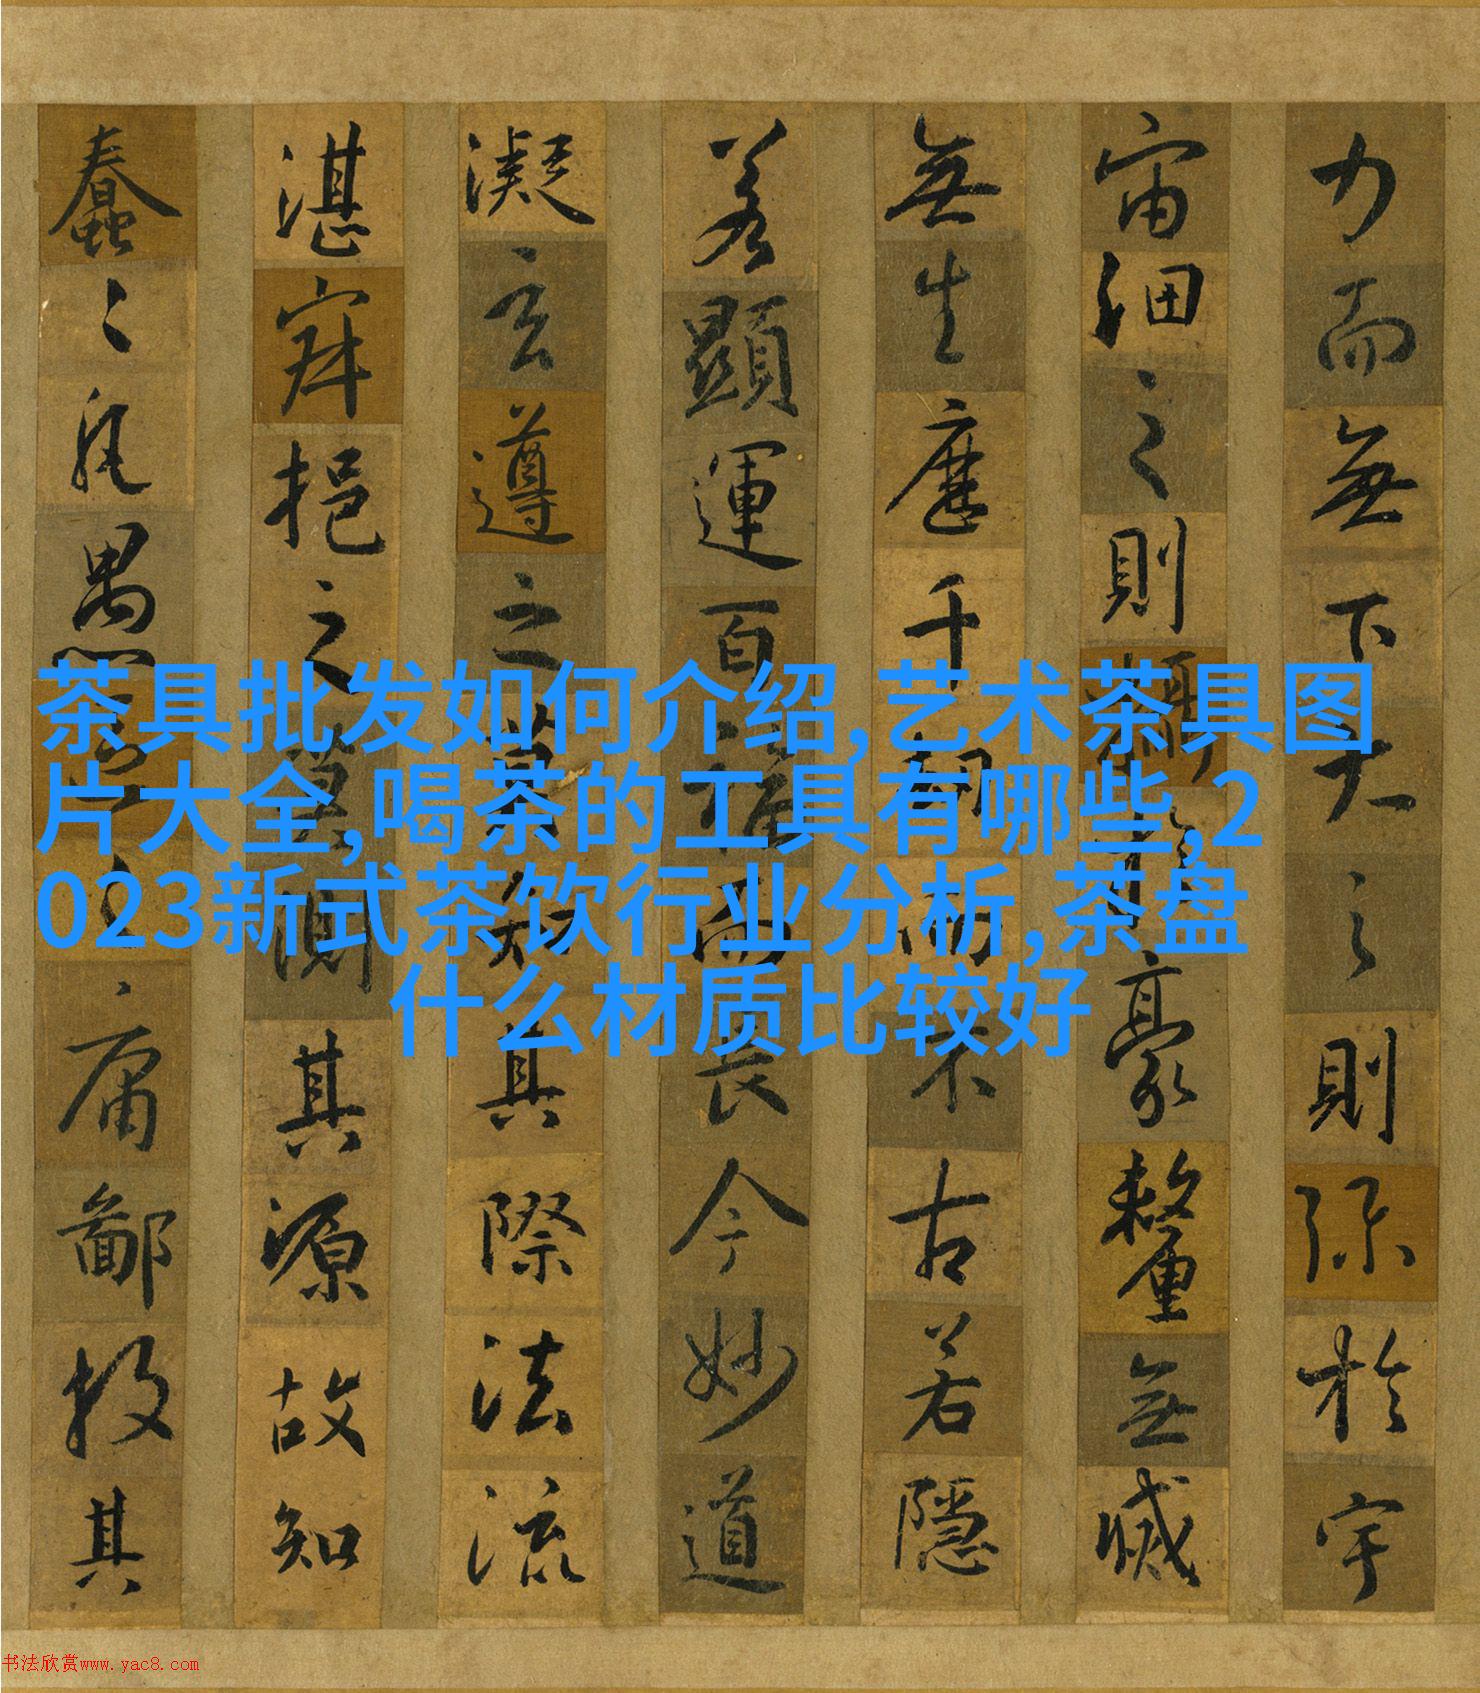 力而無下大之則弥於宇
宙細之則攝於豪釐無滅
無生歷千劫而不古若隱
若顯運百福而長今妙道
凝玄遵之莫知其際法流
湛寂挹之莫測其源故知
蠢々凡愚區々庸鄙投其
茶具批发如何介绍,艺术茶具图
片大全,喝茶的工具有哪些,2
023新式茶饮行业分析,茶盘
什么材质比较好
书法欣赏www.yac8.com